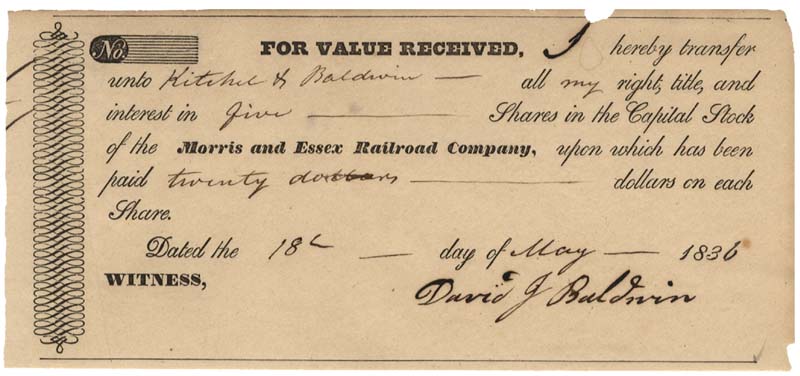 No. FOR VALUE RECEIVED, I hereby transfer
unto Kitchel & Baldwin — all my right, title, and
interest in five — Shares in the Capital Stock
of the Morris and Essex Railroad Company, upon which has been
paid twenty dollars — dollars on each
Share.
Dated the 18th — day of May — 1836
WITNESS,
David J Baldwin